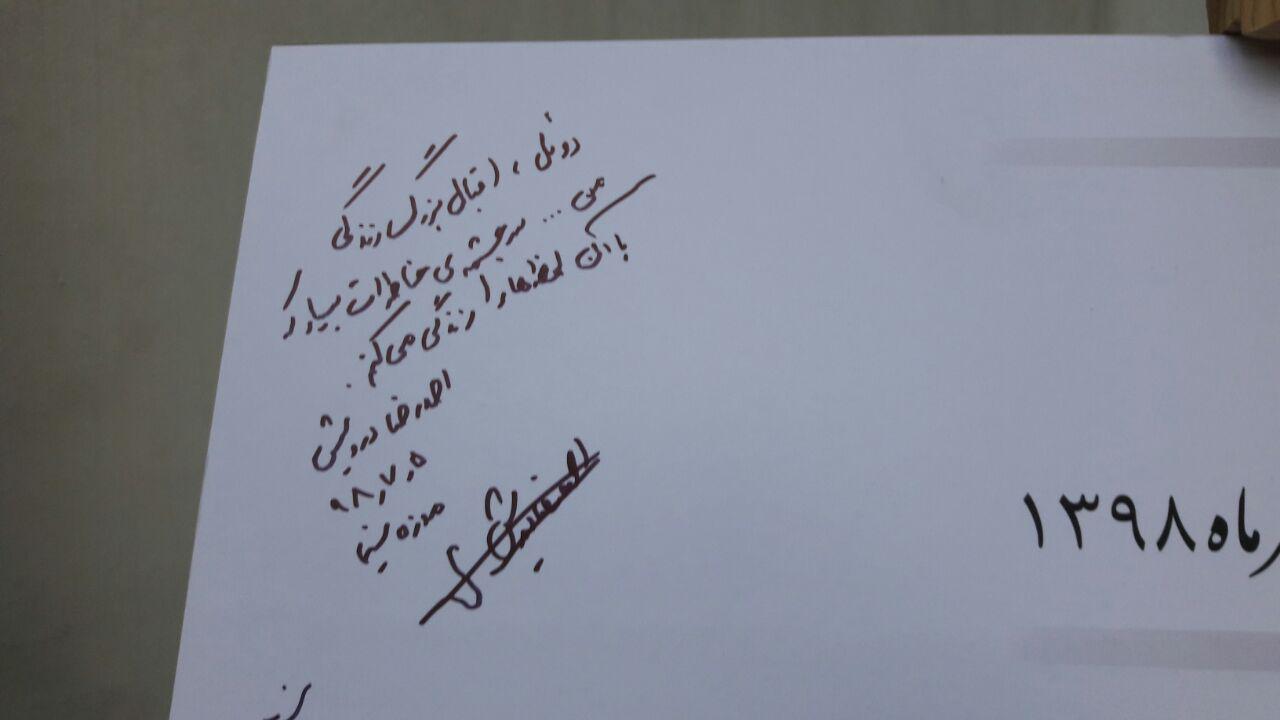 دوئل، اقبال بزرگ زندگی
من ... سرچشمه‌ی خاطرات بسیار که
با آن لحظه‌ها را زندگی می‌کنم.
احمدرضا درویش
۹۸،۷،۵
موزه سینما
ماه ۱۳۹۸